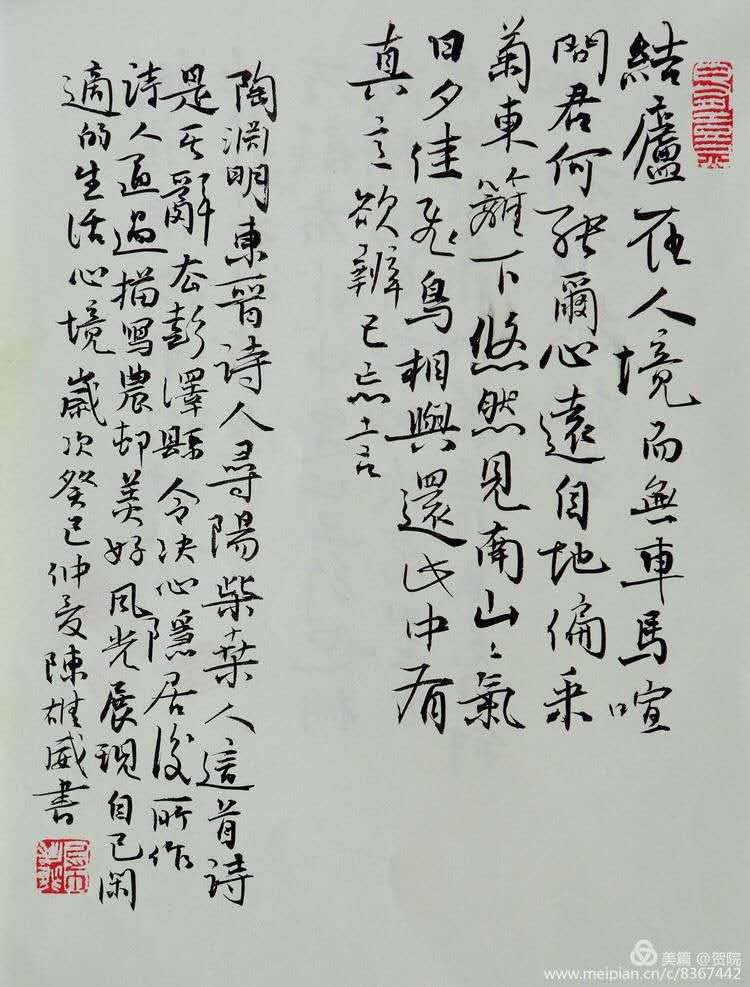 結廬在人境而無車馬喧
問君何能爾心遠自地偏采
菊東籬下悠然見南山山氣
日夕佳飛鳥相與還此中有
真意欲辨已忘言
陶渊明東晉詩人尋陽柴桑人這首詩
是其辭去彭澤縣令决心隱居後所作
詩人通過描寫農邨美好風光展現自己閑
適的生活心境 歲次癸巳仲夏陳雄威書
美篇 @贺院
www.meipian.cn/c/8367442